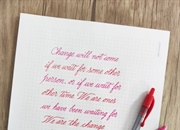 Change will not come
if we wait for some other
person, or if we wait for
other time. We are ones
we have been waiting for
We are the change